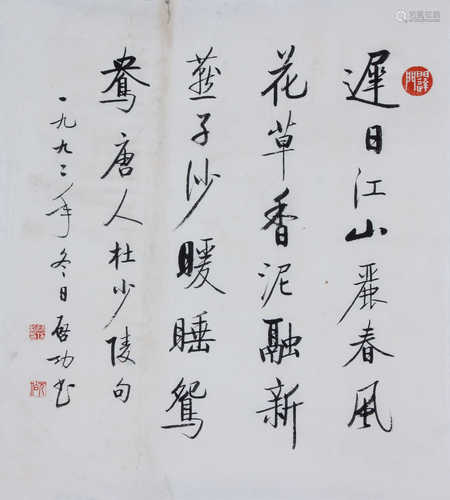 遲日江山麗春風
花草香泥融新
燕子沙暖睡鴛
鴦唐人杜少陵句
一九九二年冬日啟功书